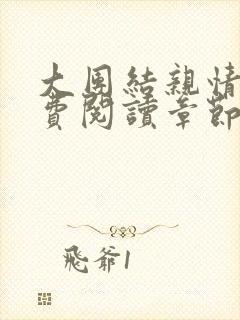 大團結親情
費閱讀章節
飛爺1